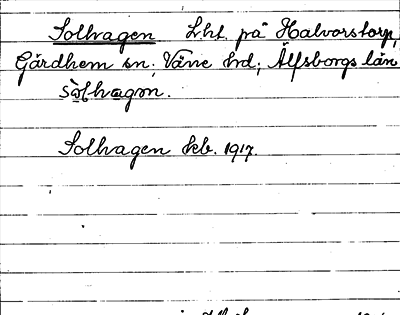 Solhagen Lht. på Halvorstorp,
Gärdhem sn; Väne hd; Älfsborgs län
Solhagen kb. 1917.